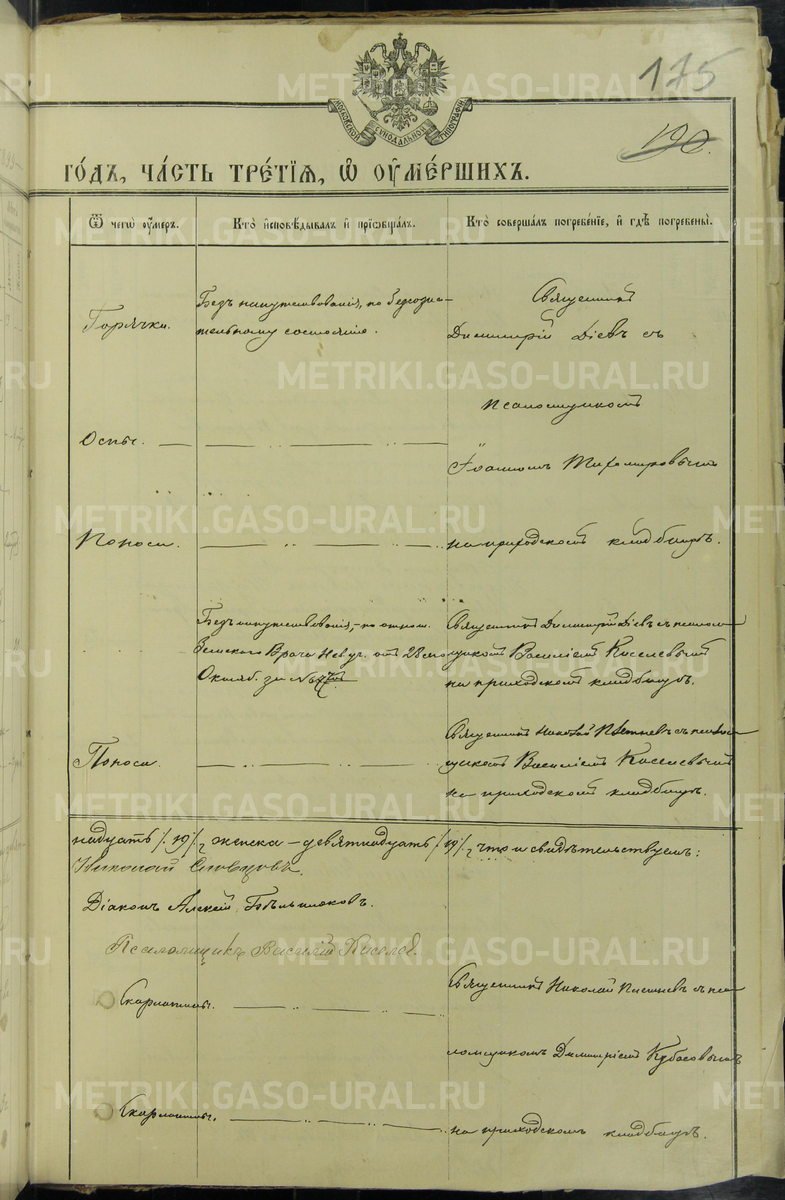 175
190.
МОСКОВСКОЙ СѴНОДАЛЬНОЙ ТИПОГРАФІИ
ГО́ДЪ, ЧА́СТЬ ТРЕ́ТІѦ, Ѽ ОУМЕ́РШИХЪ.
Ѿ чегѡ̀ оу́меръ.
Кто̀ и҆сповѣ́дывалъ и҆ прїѡбща́лъ.
Кто̀ соверша́лъ погребе́нїе, и҆ гдѣ̀ погребены̀.
Горячки.
Безъ напутствованія, по безсозна-
тельному состоянію.
Священникъ
Димитрій Діевъ съ
псаломщикомъ
Оспы.
Іоанномъ Тихомировымъ
Поноса.
на приходскомъ кладбищѣ.
Безъ напутствованія, - по отнош.
Земскаго Врача отъ 28
Октяб. за №
Священникъ Димитрій Діевъ съ псалом-
щикомъ Василіемъ Киселевымъ
на приходскомъ кладбищѣ.
Поноса.
Священникъ Николай съ псалом-
щикомъ Василіемъ Киселевымъ
на приходскомъ кладбищѣ.
надцать /19/, женска - девятнадцать /19/, что и свидѣтельствуемъ:
Николай Словцовъ.
Діаконъ Алексій Бѣльтюковъ.
Псаломщикъ Василій Киселев.
Скарлатины.
Священникъ Николай съ пса-
ломщикомъ Димитріемъ Кубасовымъ
Скарлатины.
на приходскомъ кладбищѣ.
METRIKI.GASO-URAL.RU